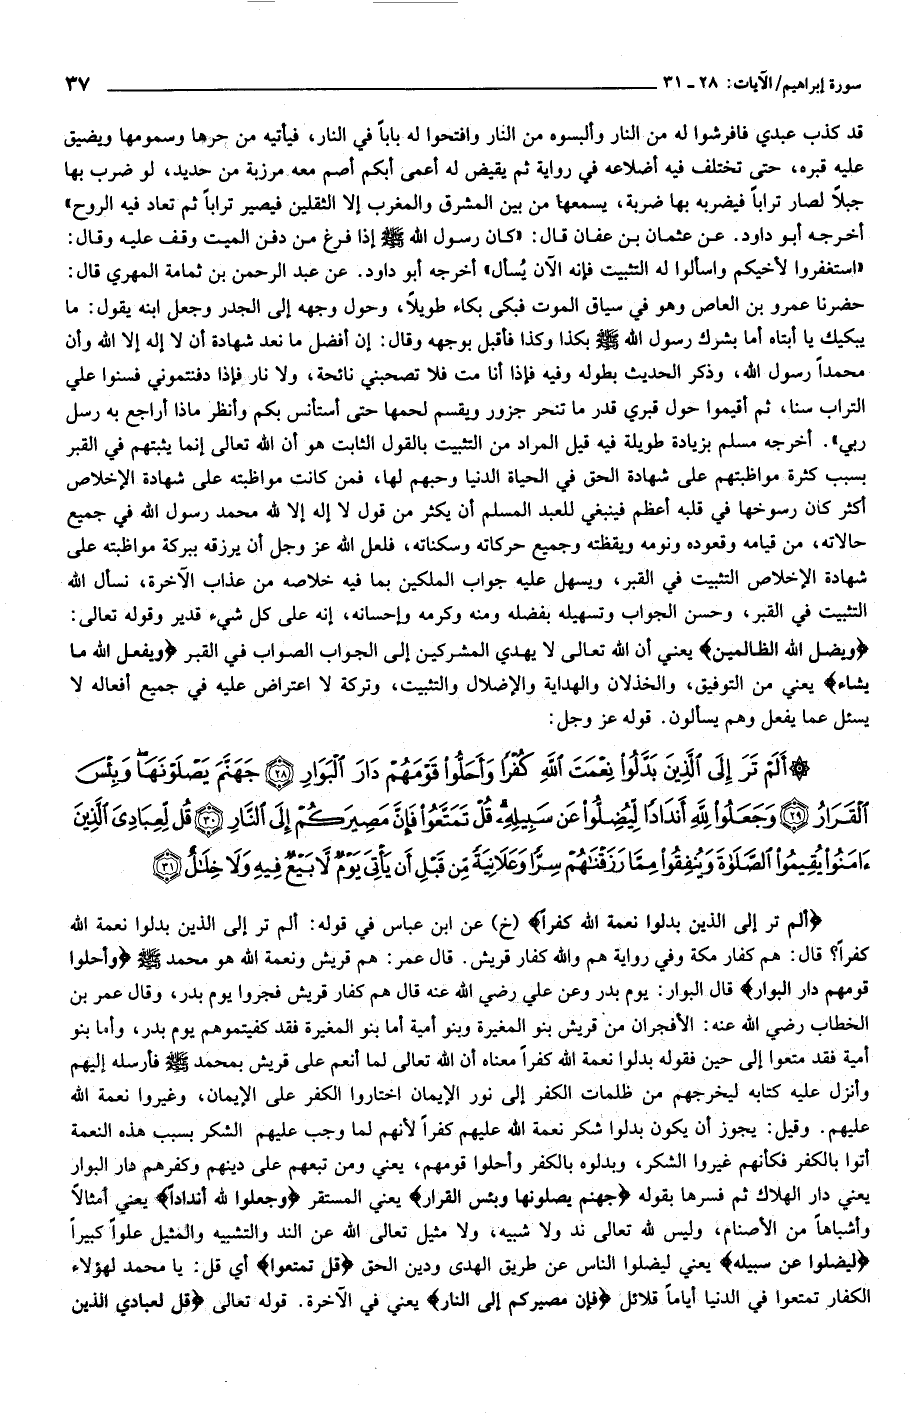 سورة إبراهيم/ الآيات: ٢٨ ـ ٣١ ٣٧
قد كذب عبدي فافرشوا له من النار وألبسوه من النار وافتحوا له باباً في النار، فيأتيه من حرها وسمومها ويضيق
عليه قبره، حتى تختلف فيه أضلاعه في رواية ثم يقيض له أعمى أبكم أصم معه مرزبة من حديد، لو ضرب بها
جبلاً لصار تراباً فيضربه بها ضربة، يسمعها من بين المشرق والمغرب إلا الثقلين فيصير تراباً ثم تعاد فيه الروح»
أخرجه أبو داود. عن عثمان بن عفان قال: «كان رسول الله ﷺ إذا فرغ من دفن الميت وقف عليه وقال:
«استغفروا لأخيكم واسألوا له التثبيت فإنه الآن يُسأل» أخرجه أبو داود. عن عبد الرحمن بن ثمامة المهري قال:
حضرنا عمرو بن العاص وهو في سياق الموت فبكى بكاء طويلاً، وحول وجهه إلى الجدر وجعل ابنه يقول: ما
يبكيك يا أبتاه أما بشرك رسول الله ﷺ بكذا وكذا فأقبل بوجهه وقال: إن أفضل ما نعد شهادة أن لا إله إلا الله وأن
محمداً رسول الله، وذكر الحديث بطوله وفيه فإذا أنا مت فلا تصحبني نائحة، ولا نار فإذا دفنتموني فسنوا علي
التراب سنا، ثم أقيموا حول قبري قدر ما تنحر جزور ويقسم لحمها حتى أستأنس بكم وأنظر ماذا أراجع به رسل
ربي». أخرجه مسلم بزيادة طويلة فيه قيل المراد من التثبيت بالقول الثابت هو أن الله تعالى إنما يثبتهم في القبر
بسبب كثرة مواظبتهم على شهادة الحق في الحياة الدنيا وحبهم لها، فمن كانت مواظبته على شهادة الإخلاص
أكثر كان رسوخها في قلبه أعظم فينبغي للعبد المسلم أن يكثر من قول لا إله إلا لله محمد رسول الله في جميع
حالاته، من قيامه وقعوده ونومه ويقظته وجميع حركاته وسكناته، فلعل الله عز وجل أن يرزقه ببركة مواظبته على
شهادة الإخلاص التثبيت في القبر، ويسهل عليه جواب الملكين بما فيه خلاصه من عذاب الآخرة، نسأل الله
التثبيت في القبر، وحسن الجواب وتسهيله بفضله ومنه وكرمه وإحسانه، إنه على كل شيء قدير وقوله تعالى:
﴿ويضل الله الظالمين﴾ يعني أن الله تعالى لا يهدي المشركين إلى الجواب الصواب في القبر ﴿ويفعل الله ما
يشاء﴾ يعني من التوفيق، والخذلان والهداية والإضلال والتثبيت، وتركة لا اعتراض عليه في جميع أفعاله لا
يسئل عما يفعل وهم يسألون. قوله عز وجل:
۞ أَلَمْ تَرَ إِلَى الَّذِينَ بَدَّلُوا نِعْمَتَ اللَّهِ كُفْرًا وَأَحَلُّوا قَوْمَهُمْ دَارَ الْبَوَارِ ﴿٢٨﴾ جَهَنَّمَ يَصْلَوْنَهَا وَبِئْسَ
الْقَرَارُ ﴿٢٩﴾ وَجَعَلُوا لِلَّهِ أَندَادًا لِيُضِلُّوا عَن سَبِيلِهِ قُلْ تَمَتَّعُوا فَإِنَّ مَصِيرَكُمْ إِلَى النَّارِ ﴿٣٠﴾ قُل لِعِبَادِيَ الَّذِينَ
ءَامَنُوا يُقِيمُوا الصَّلَوٰةَ وَيُنفِقُوا مِمَّا رَزَقْنَٰهُمْ سِرًّا وَعَلَانِيَةً مِن قَبْلِ أَن يَأْتِيَ يَوْمٌ لَا بَيْعٌ فِيهِ وَلَا خِلَٰلٌ ﴿٣١﴾
﴿ألم تر إلى الذين بدلوا نعمة الله كفراً﴾ (خ) عن ابن عباس في قوله: ألم تر إلى الذين بدلوا نعمة الله
كفراً؟ قال: هم كفار مكة وفي رواية هم والله كفار قريش. قال عمر: هم قريش ونعمة الله هو محمد ﷺ ﴿وأحلوا
قومهم دار البوار﴾ قال البوار: يوم بدر وعن علي رضي الله عنه قال هم كفار قريش فجروا يوم بدر، وقال عمر بن
الخطاب رضي الله عنه: الأفجران من قريش بنو المغيرة وبنو أمية أما بنو المغيرة فقد كفيتموهم يوم بدر، وأما بنو
أمية فقد متعوا إلى حين فقوله بدلوا نعمة الله كفراً معناه أن الله تعالى لما أنعم على قريش بمحمد ﷺ فأرسله إليهم
وأنزل عليه كتابه ليخرجهم من ظلمات الكفر إلى نور الإيمان اختاروا الكفر على الإيمان، وغيروا نعمة الله
عليهم. وقيل: يجوز أن يكون بدلوا شكر نعمة الله عليهم كفراً لأنهم لما وجب عليهم الشكر بسبب هذه النعمة
أتوا بالكفر فكأنهم غيروا الشكر، وبدلوه بالكفر وأحلوا قومهم، يعني ومن تبعهم على دينهم وكفرهم دار البوار
يعني دار الهلاك ثم فسرها بقوله ﴿جهنم يصلونها وبئس القرار﴾ يعني المستقر ﴿وجعلوا لله أنداداً﴾ يعني أمثالاً
وأشباهاً من الأصنام، وليس لله تعالى ند ولا شبيه، ولا مثيل تعالى الله عن الند والتشبيه والمثيل علواً كبيراً
﴿ليضلوا عن سبيله﴾ يعني ليضلوا الناس عن طريق الهدى ودين الحق ﴿قل تمتعوا﴾ أي قل: يا محمد لهؤلاء
الكفار تمتعوا في الدنيا أياماً قلائل ﴿فإن مصيركم إلى النار﴾ يعني في الآخرة. قوله تعالى ﴿قل لعبادي الذين